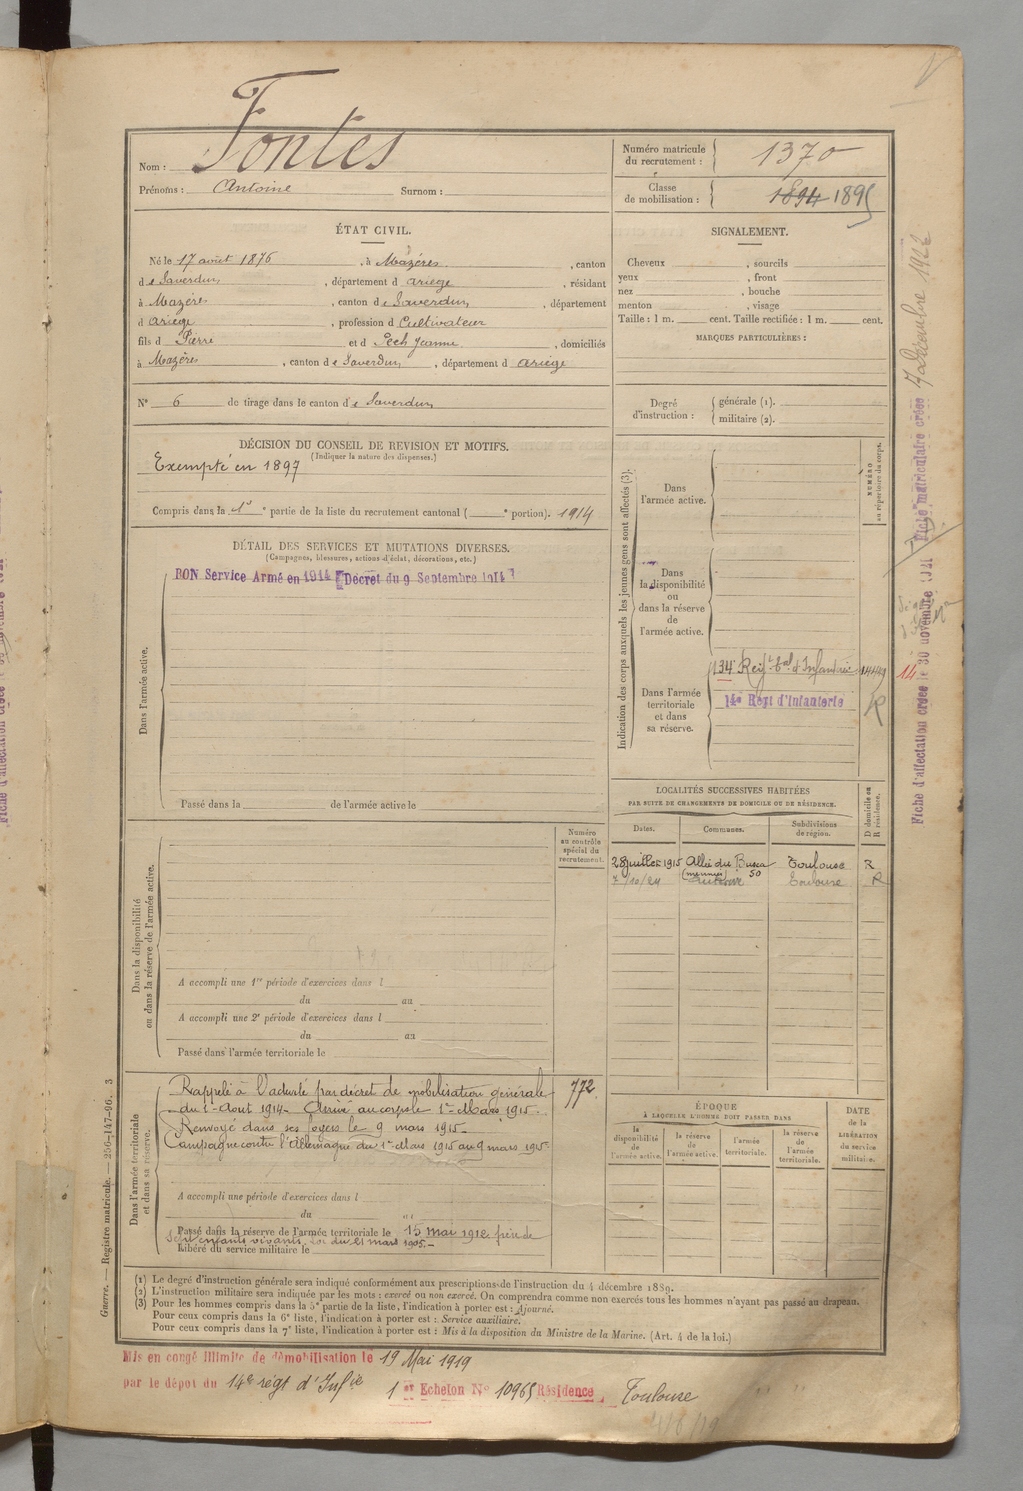 Nom : Fontes
Prénoms : Antoine Surnom :
Numéro matricule du recrutement : 1370
Classe de mobilisation : 1894 1895
ÉTAT CIVIL.
Né le 17 août 1876, à Mazères, canton
de Saverdun, département d Ariège, résidant
à Mazères, canton de Saverdun, département
d Ariège, profession d Cultivateur
fils d Pierre et d Pech Jeanne, domiciliés
à Mazères, canton de Saverdun, département d Ariège
N° 6 de tirage dans le canton de Saverdun
SIGNALEMENT.
Cheveux , sourcils
yeux , front
nez , bouche
menton , visage
Taille : 1 m. cent. Taille rectifiée : 1 m. cent.
MARQUES PARTICULIÈRES :
Degré d'instruction : générale (1).
militaire (2).
DÉCISION DU CONSEIL DE REVISION ET MOTIFS.
(Indiquer la nature des dispenses.)
Exempté en 1897
Compris dans la 1e partie de la liste du recrutement cantonal ( e portion). 1914
DÉTAIL DES SERVICES ET MUTATIONS DIVERSES.
(Campagnes, blessures, actions d'éclat, décorations, etc.)
BON Service Armé en 1914 Décret du 9 Septembre 1914
Dans l'armée active.
Passé dans la de l'armée active le
Indication des corps auxquels les jeunes gens sont affectés (3).
NUMÉRO au répertoire du corps.
Dans l'armée active.
Dans la disponibilité ou dans la réserve de l'armée active.
Dans l'armée territoriale et dans sa réserve.
134e Regt tal d'Infanterie
14e Regt d'Infanterie
R
14
LOCALITÉS SUCCESSIVES HABITÉES
PAR SUITE DE CHANGEMENTS DE DOMICILE OU DE RÉSIDENCE.
Dates. Communes. Subdivisions de région. D domicile ou R résidence.
28 juillet 1915 Allée du Busca 50 Toulouse R
7/10/24 Toulouse R
Numéro au contrôle spécial du recrutement.
Dans la disponibilité ou dans la réserve de l'armée active.
A accompli une 1re période d'exercices dans l
du au
A accompli une 2e période d'exercices dans l
du au
Passé dans l'armée territoriale le
Dans l'armée territoriale et dans sa réserve.
Rappelé à l'activité par décret de mobilisation générale 772
du 1er Août 1914. Arrivé au corps le 1er Mars 1915.
Renvoyé dans ses foyers le 9 mars 1915.
Campagne contre l'Allemagne du 1er Mars 1915 au 9 mars 1915.
A accompli une période d'exercices dans l
du au
Passé dans la réserve de l'armée territoriale le 15 mai 1912 père de
sept enfants vivants, loi du 21 mars 1905.
Libéré du service militaire le
ÉPOQUE
À LAQUELLE L'HOMME DOIT PASSER DANS
la disponibilité de l'armée active. la réserve de l'armée active. l'armée territoriale. la réserve de l'armée territoriale.
DATE de la LIBÉRATION du service militaire.
(1) Le degré d'instruction générale sera indiqué conformément aux prescriptions de l'instruction du 4 décembre 1889.
(2) L'instruction militaire sera indiquée par les mots : exercé ou non exercé. On comprendra comme non exercés tous les hommes n'ayant pas passé au drapeau.
(3) Pour les hommes compris dans la 5e partie de la liste, l'indication à porter est : Ajourné.
Pour ceux compris dans la 6e liste, l'indication à porter est : Service auxiliaire.
Pour ceux compris dans la 7e liste, l'indication à porter est : Mis à la disposition du Ministre de la Marine. (Art. 4 de la loi.)
Mis en congé illimité de démobilisation le 19 Mai 1919
par le dépôt du 14e régt d'Infie 1er Echelon N° 10965 Résidence Toulouse
Guerre. — Registre matricule. — 256-147-96. 3
Fiche d'affectation créée le 30 novembre 1921
Fiche matriculaire créée 7 décembre 1922